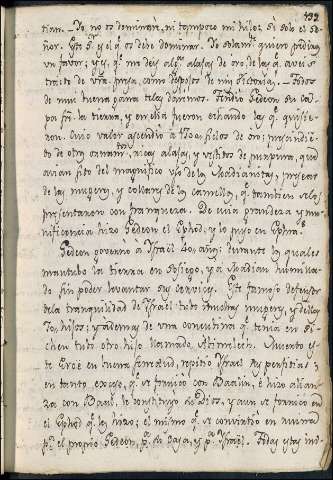 132
tian. – Yo no os dominaré, ni tampoco mi hijo; si solo el Se-
ñor. Este Sr. es el q.e os debe dominar. Yo solam.te quiero pediros
un favor; y es, q.e me deis alg.s alajas de oro de las q.e aveis
traido de vra. presa, como despojos de mis victorias. – Todos
de mui buena gana te las daremos. Tendió Gedeon su ca-
pa sre. la tierra, y en ella fueron echando las q.e quisie-
ron. Cuio valor ascendió a 1700 siclos de oro; prescindien-
do de otros ornam.tos, ricas alajas, y vestidos de purpura, que
avian sido del magnifico uso de los Madianitas, preseas
de las mugeres, y collares de los camellos, q.e tambien se los
presentaron con franqueza. De cuia grandeza y mu-
nificencia hizo Gedeon el Ephod, y lo puso en Ephra.
Gedeon governó à Israel 40, años; durante los quales
mantubo la tierra en sosiego, y a Madian humilla-
do sin poder levantar sus cervices. Este famoso defensor
de la tranquilidad de Israel tubo muchas mugeres, y de ellas
70, hijos; y ademas de una concubina q.e tenia en Si-
chen tubo otro hijo llamado Abimelech. Muerto es-
te Eroe en buena senectud, repitió Israel sus perfidias; y
en tanto exceso, q.e se fornicó con Baalim, è hizo alian-
za con Baal, le constituyó su Dios, y aun se fornicó en
el Ephod q.e les hizo; el mismo q.e se convirtió en ruina
p.a el propio Gedeon, p.a su casa, y p.a Israel. Todas estas in-